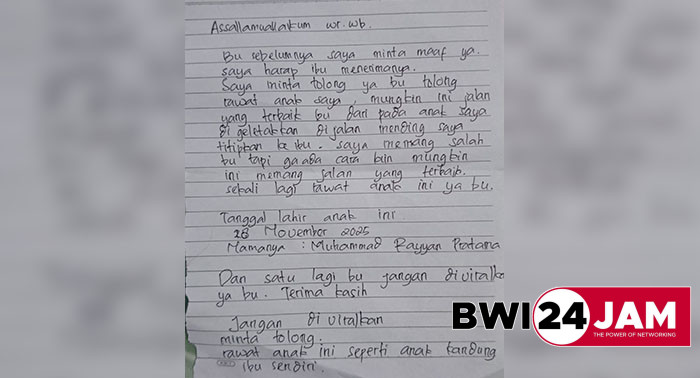 Assallamuallaikum wr.wb.
Bu sebelumnya saya minta maaf ya.
saya harap ibu menerimanya.
Saya minta tolong ya bu tolong
rawat anak saya, mungkin ini jalan
yang terbaik bu dari pada anak saya
di geletakkan di jalan mending saya
titipkan ke ibu. saya memang salah
bu tapi ga ada cara lain mungkin
ini memang jalan yang terbaik.
sekali lagi rawat anak ini ya bu.
Tanggal lahir anak ini
28 November 2025
Namanya : Muhammad Rayyan Pratama
Dan satu lagi bu jangan diviralka
ya bu. Terima kasih
Jangan di viralkan
minta tolong.
rawat anak ini seperti anak kandung
ibu sendiri.
BWI24JAM
THE POWER OF NETWORKING